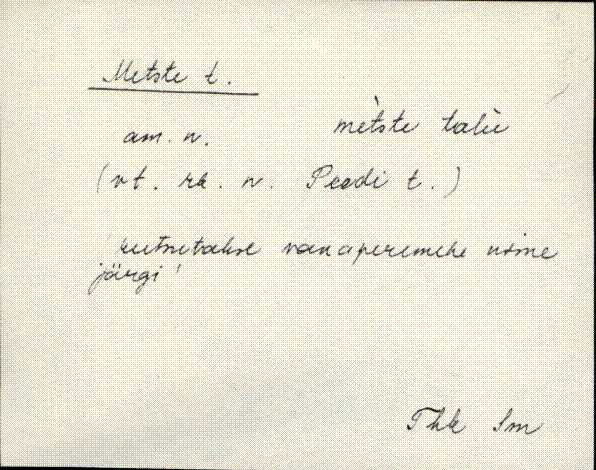 Metste t.
am. n. mètste talù
(vt. rk. n. Peedi t.)
'kutsutakse vanaperemehe nime
järgi'
Thk Sm